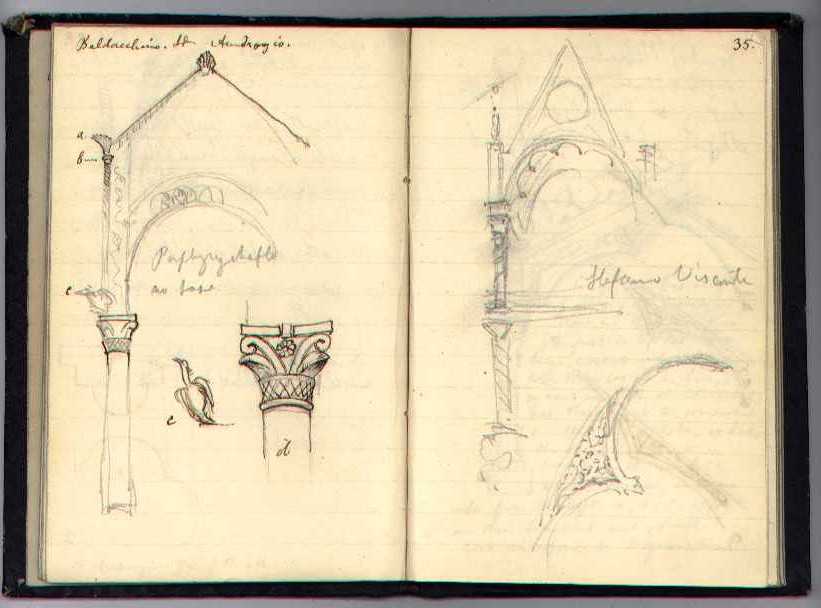 Baldacchino. St Ambrogio.
a
b
Porphyry shafts
no base
c
c
d
35.
Stefano Visconti